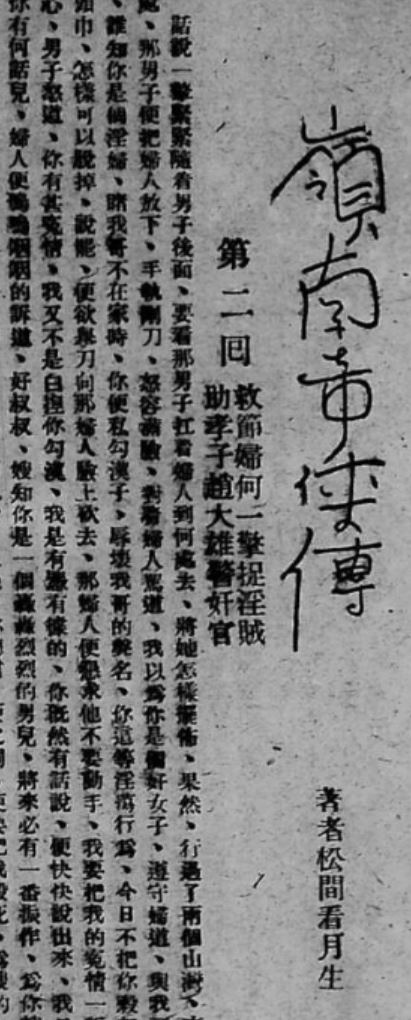 嶺南奇俠傳
著者松間看月生
第二回
救節婦何一擎捉淫賊
助孝子趙大雄警奸官
話說一擎緊緊隨着男子後面、要看那男子扛着婦人到何處去、將她怎樣擺佈、果然、行過了兩個山灣、
處、那男子便把婦人放下、手執刀、怒容滿臉、對着婦人罵道、我以為你是個好女子、遵守婦道、與我
誰知你是個淫婦、瞎我哥不在家時、你便私勾漢子、辱壞我哥的聲名、你這等淫蕩行為、今日不把你殺
頭巾、怎樣可以脫掉、說罷、便欲舉刀向那婦人臉上砍去、那婦人便懇求他不要動手、我要把我的冤情一
心、男子怒道、你有甚冤情、我又不是白捏你勾漢、我是有憑有據的、你既然有話說、便快快說出來、我
你有何話兒、婦人便嗚嗚咽咽的訴道、好叔叔、嫂知你是一個轟轟烈烈的男兒、將來必有一番振作、為你